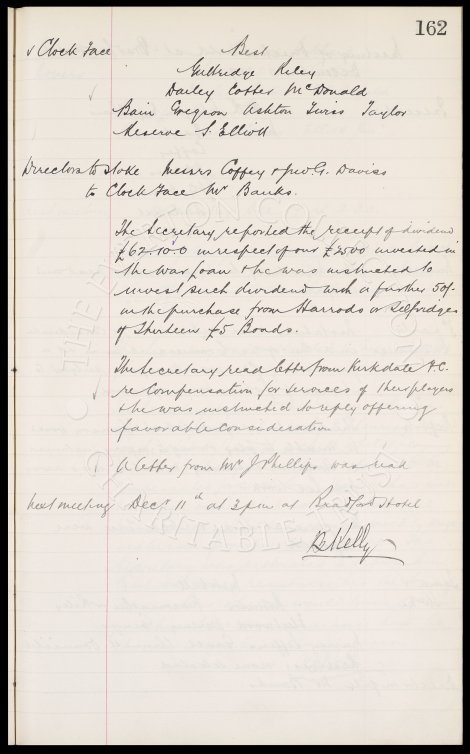 162
v Clock Face Best
Guttridge Riley
Dailey Cotter McDonald
Bain Gregson Ashton Twiss Taylor
Reserve S. Elliott
Directors to Stoke Messrs Coffey & Jno. G. Davies
to Clock Face Mr Banks.
The Secretary reported the receipt of dividend
£62.10.0 in respect of our £2500 invested in
the War Loan & he was instructed to
invest such dividend with a further 50/-
in the purchase from Harrods or Selfridges
of Thirteen £5 Bonds.
The Secretary read letter from Kirkdale F.C.
re Compensation for services of their players
& he was instructed to reply offering
favorable consideration
A letter from Mr J. Phillips was read
next meeting Decr 11th at 2pm at Bradford Hotel
B Kelly